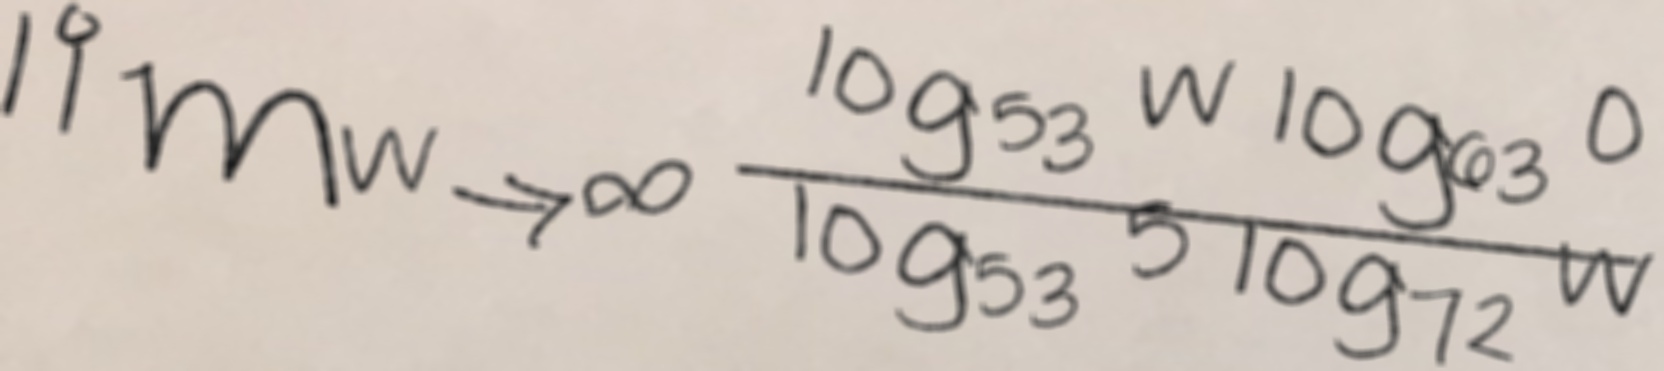 \lim_{w \to \infty} \frac{\log_{53} w \log_{63} 0}{\log_{53} 5 \log_{72} w}